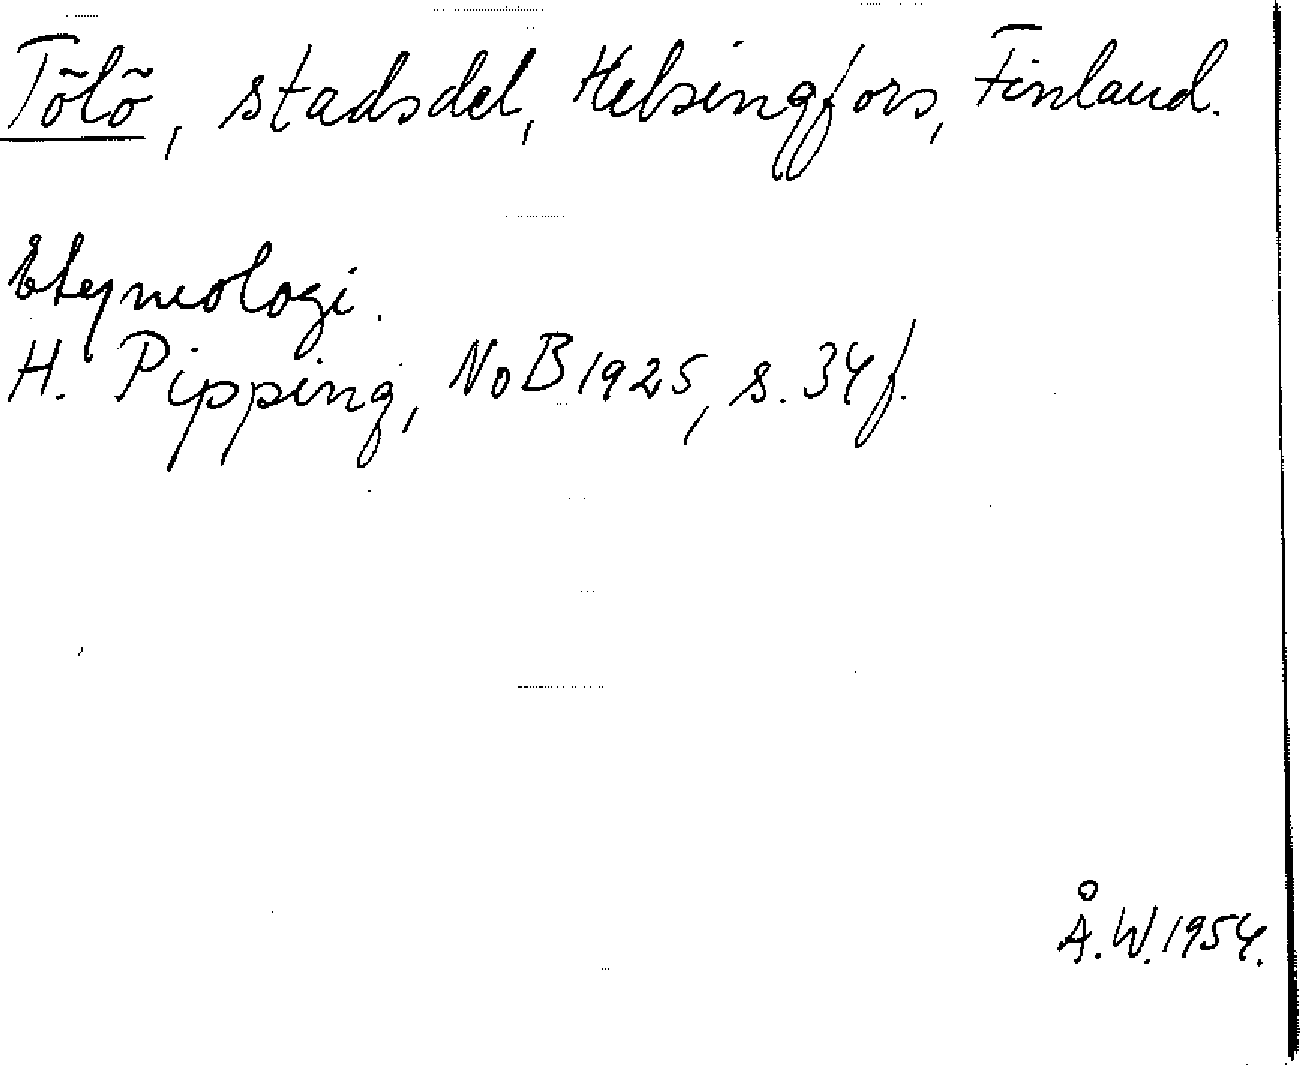 Tölö, stadsdel, Helsingfors, Finland.
Etymologi.
H. Pipping, NoB 1925, s. 34 f.
Å.W. 1954.